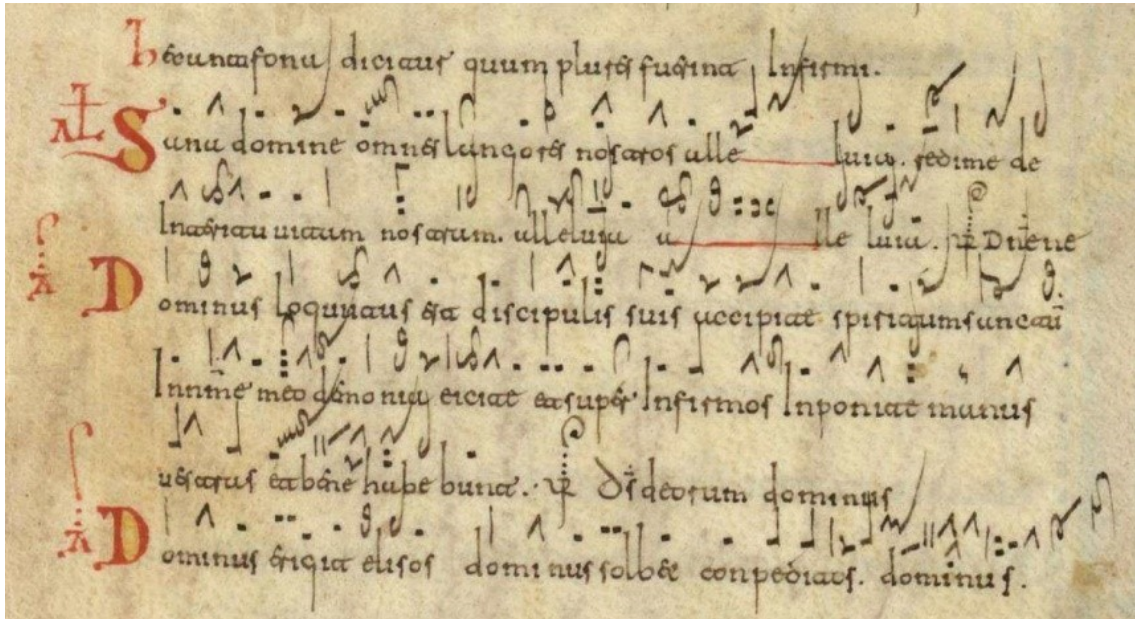 Hec antifona dicitur quum plures fuerint Infirmi.
Sana domine omnes langores nostros alle luia. redime de
Interitu uitam nostram. alleluia a lle luia. VR Dne ne
Dominus loquutus est discipulis suis accipite spiritum sanctū
In nme meo demonia eicite et super Infirmos Inponite manus
uestras et bene habebunt. VR Ds deorum dominus
Dominus erigit elisos dominus solbet conpeditos. dominus.